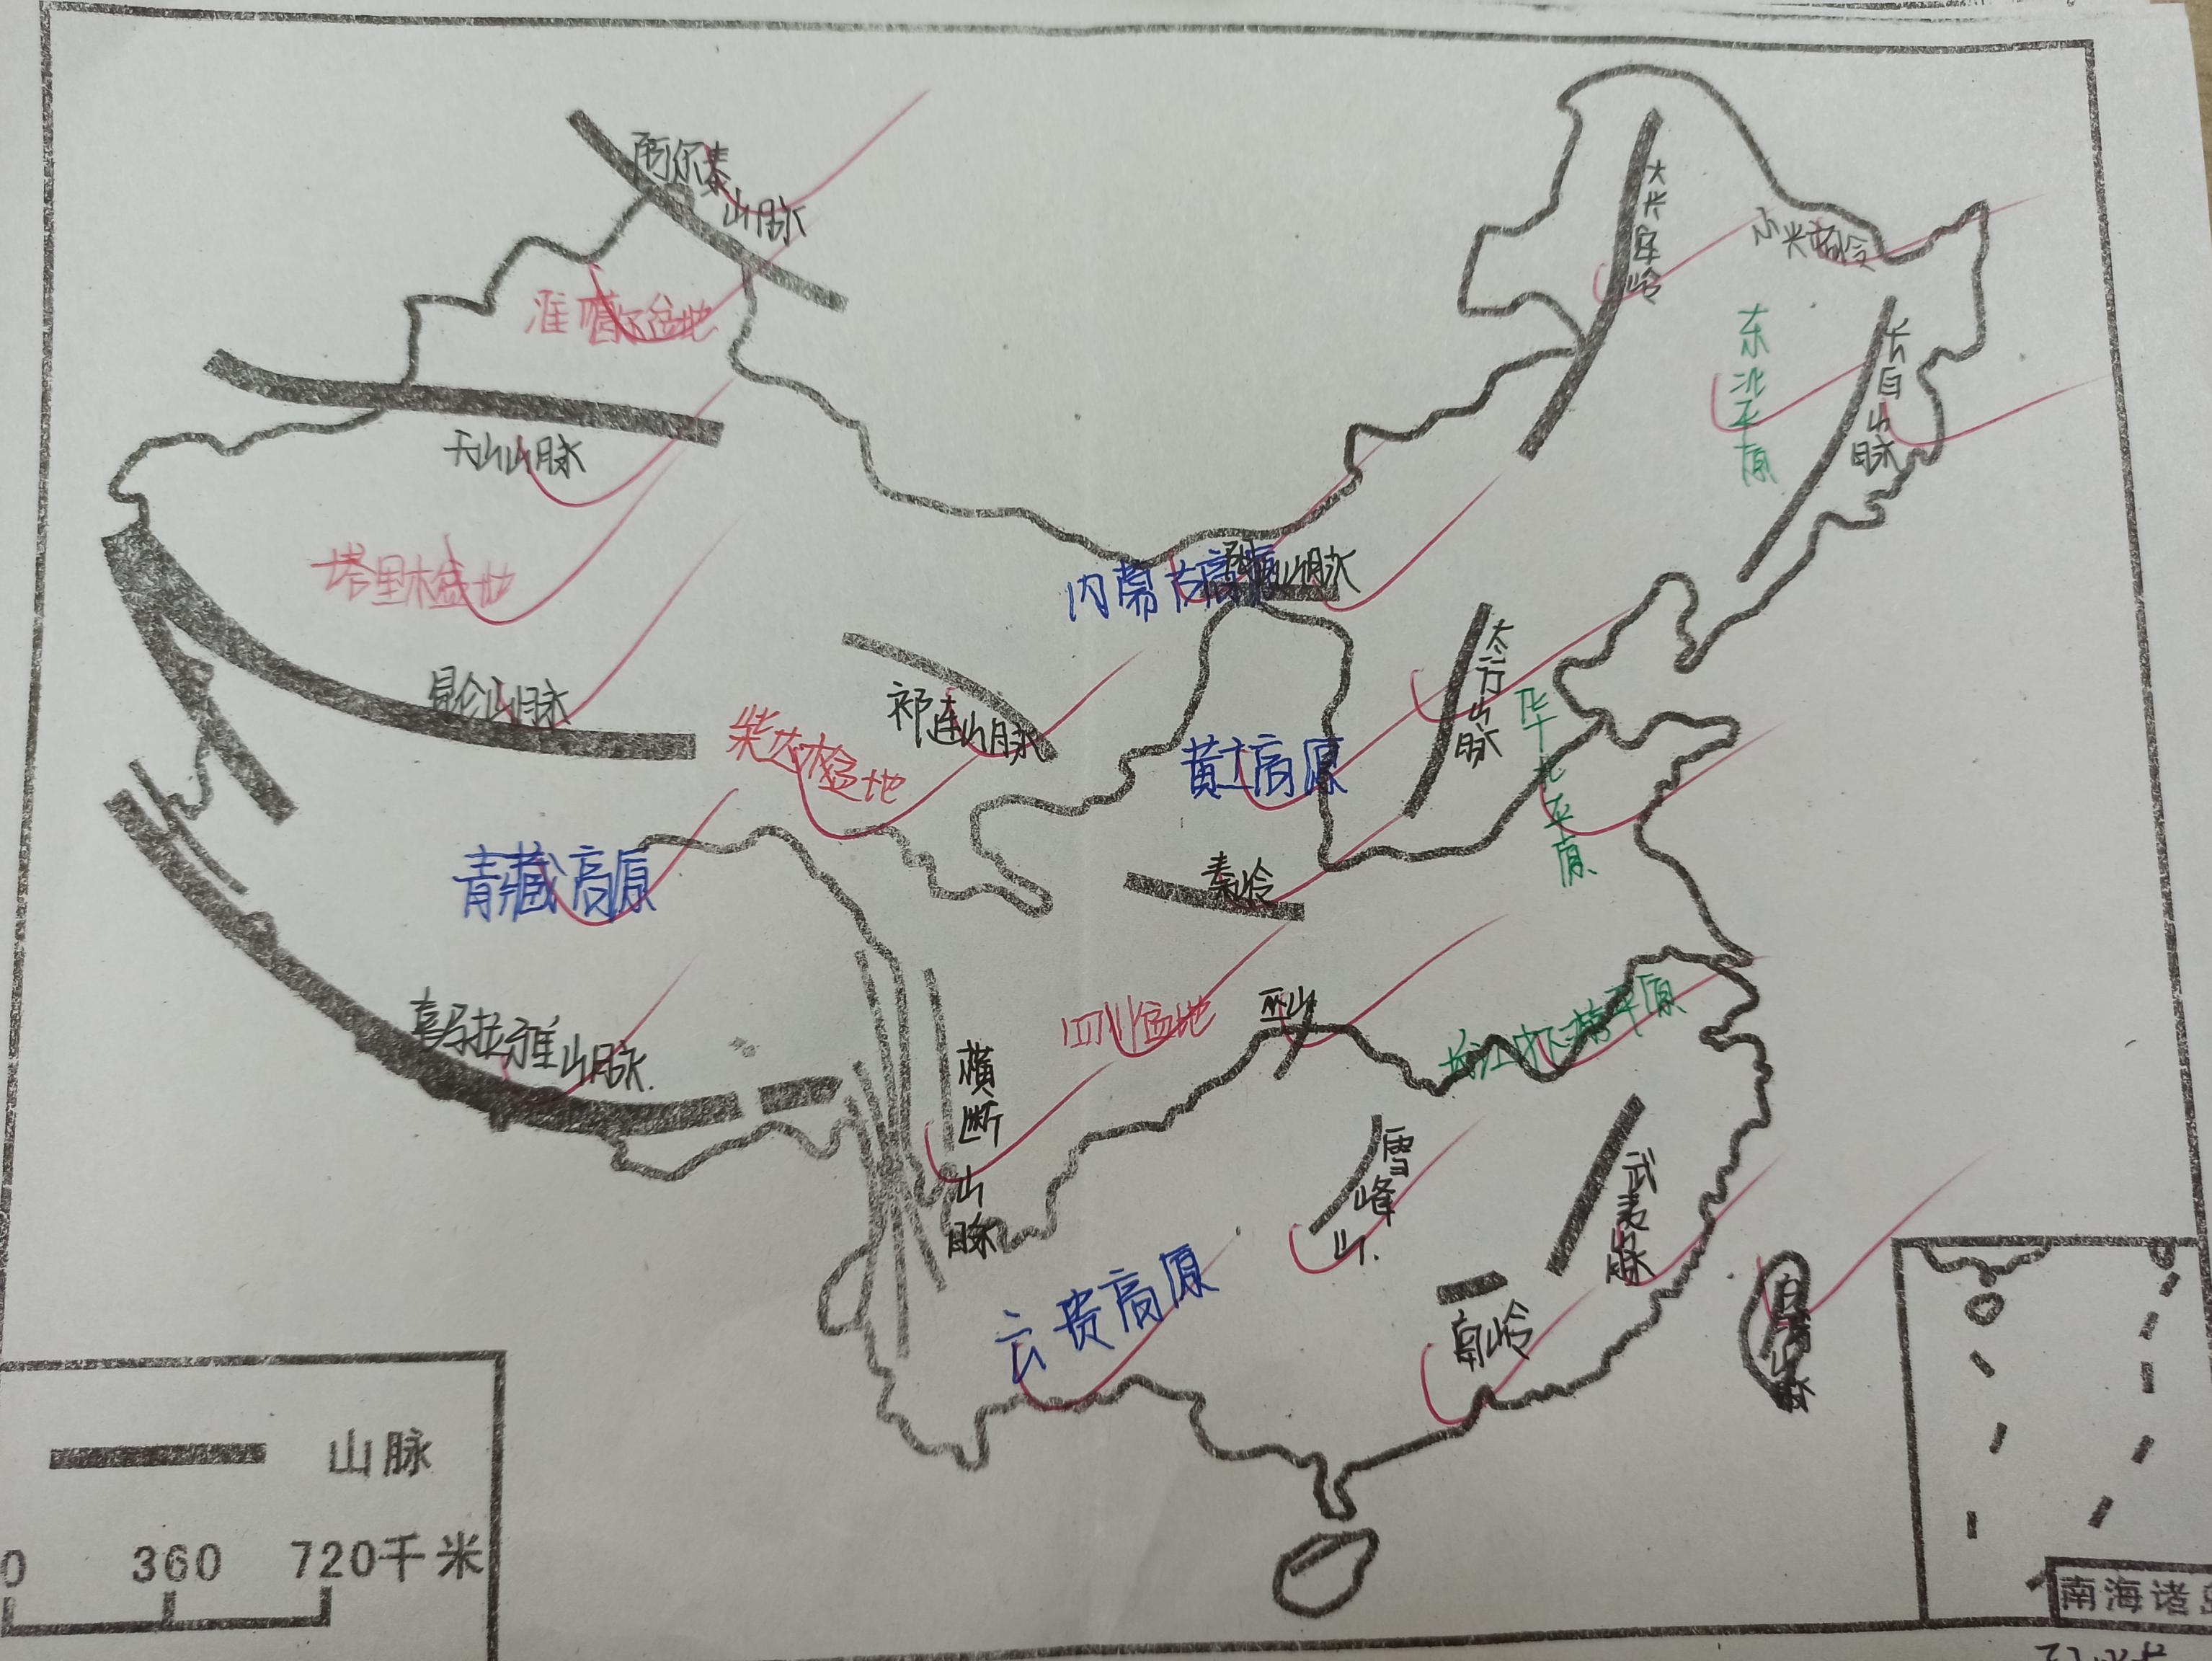 阿尔泰
山脉
大兴安岭
小兴安岭
准噶尔盆地
东北平原
长白山脉
天山山脉
塔里木盆地
内蒙古高原
山脉
昆仑山脉
祁连山脉
太行山脉
柴达木盆地
黄土高原
华北平原
青藏高原
秦岭
喜马拉雅山脉
四川盆地
巫山
长江中下游平原
横断山脉
雪峰山
武夷山脉
云贵高原
南岭
山脉
0 360 720千米
南海诸